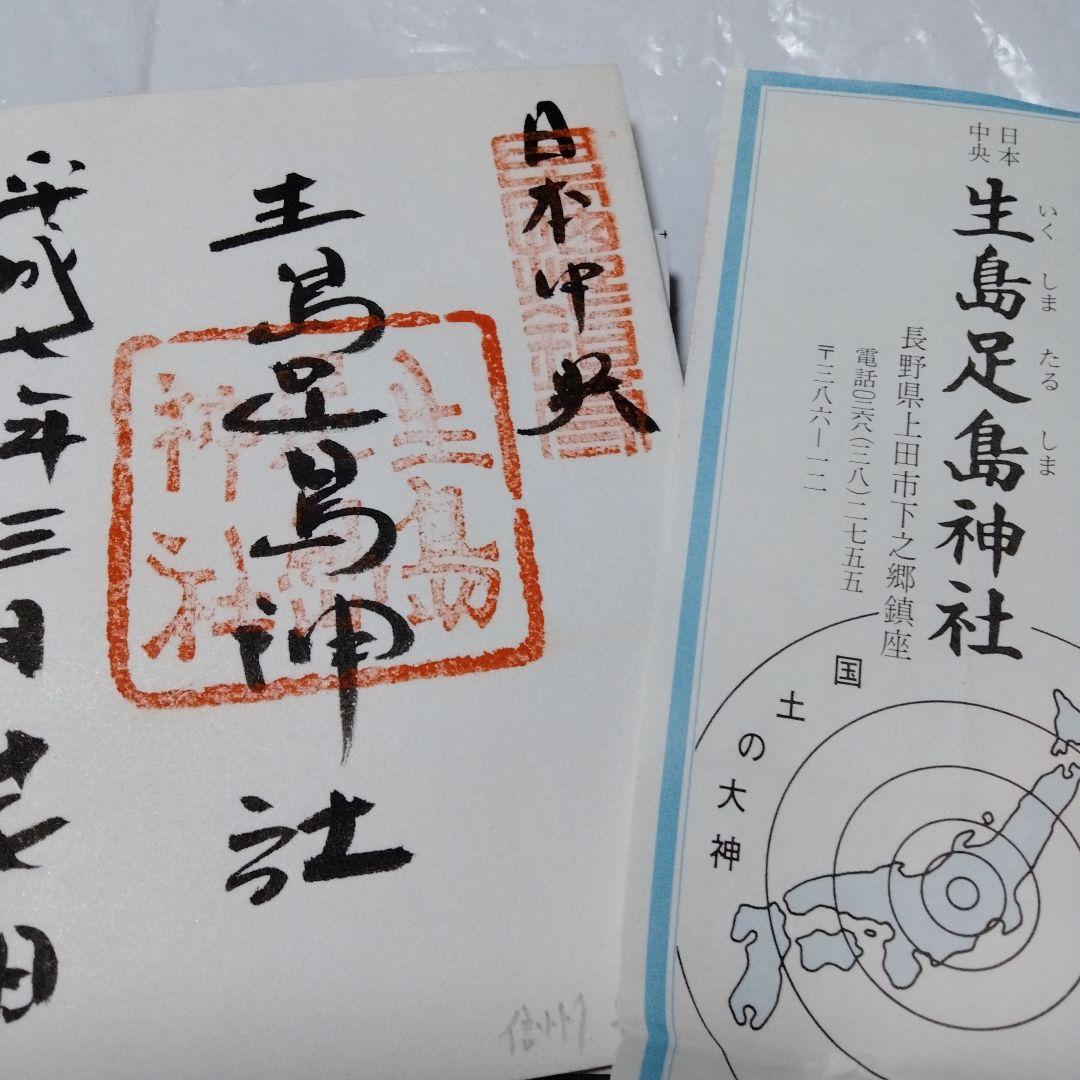 日本中央
生島足島神社
平成七年三月
生島足島神社
日本
中央
生島足島神社
いくしまたるしま
長野県上田市下之郷鎮座
電話〇二六八(三八)二七五五
〒三八六ー一二
国土の大神
信州